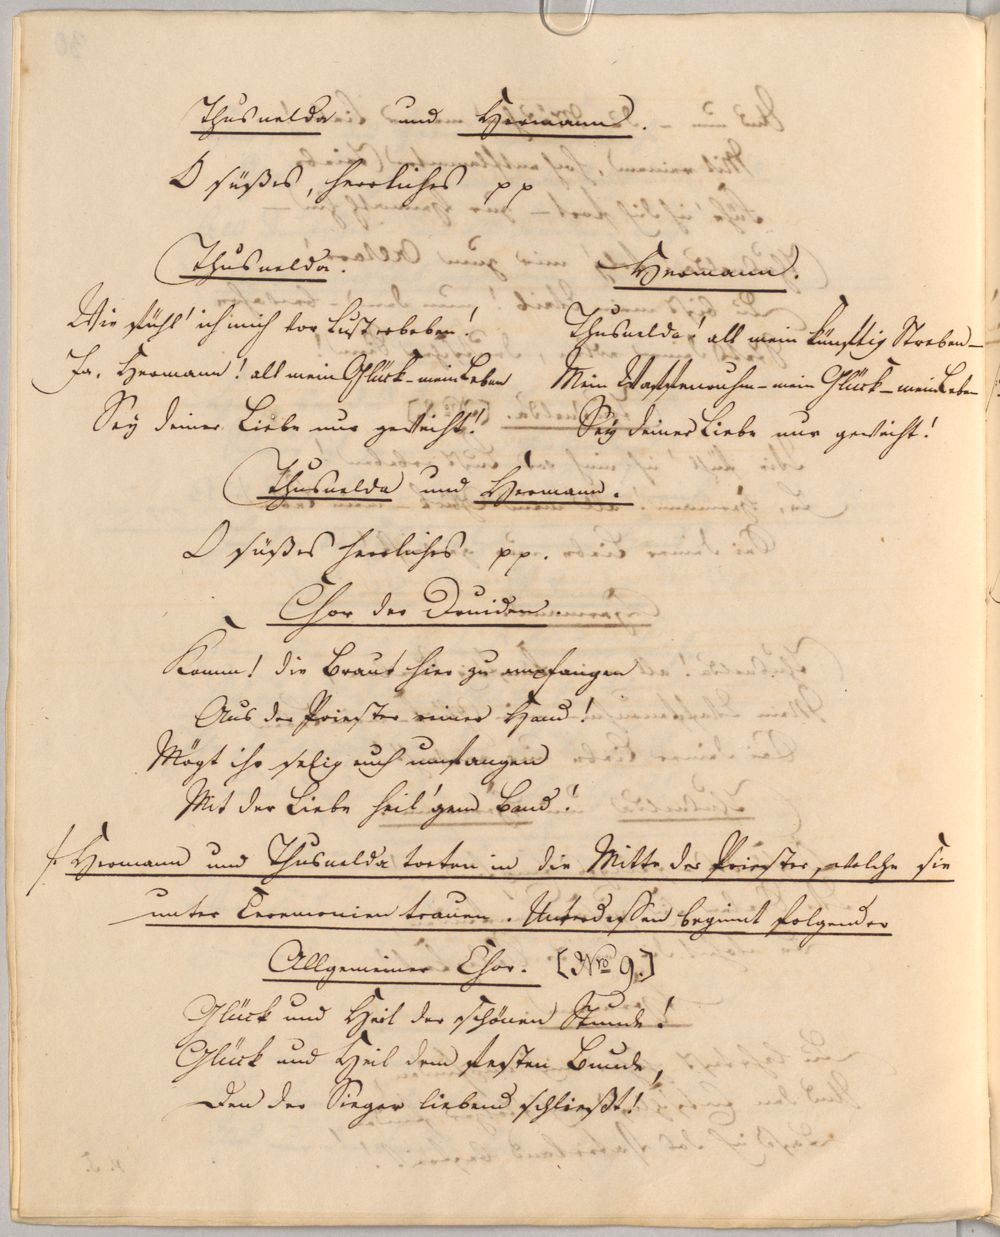 Thusnelda und Hermann.
O süßes, herrliches pp
Thusnelda.
Wie fühl' ich mich vor Lust erbeben!
Ja, Hermann! all mein Glück – mein Leben
Sey deiner Liebe nur geweiht!
Hermann.
Thusnelda! all mein künftig Streben –
Mein Waffenruhm – mein Glück – mein Leben
Sey deiner Liebe nur geweiht!
Thusnelda und Hermann.
O süßes herrliches pp.
Chor der Druiden.
Komm! die Braut hier zu empfangen
Aus der Priester reiner Hand!
Mögt ihr selig euch umfangen
Mit der Liebe heil'gem Band!
Hermann und Thusnelda treten in die Mitte der Priester, welche sie
unter Ceremonien trauen. Unterdessen beginnt folgender
Allgemeiner Chor. [Nro 9.]
Glück und Heil der schönen Stunde!
Glück und Heil dem festen Bunde,
Den der Sieger liebend schließt!